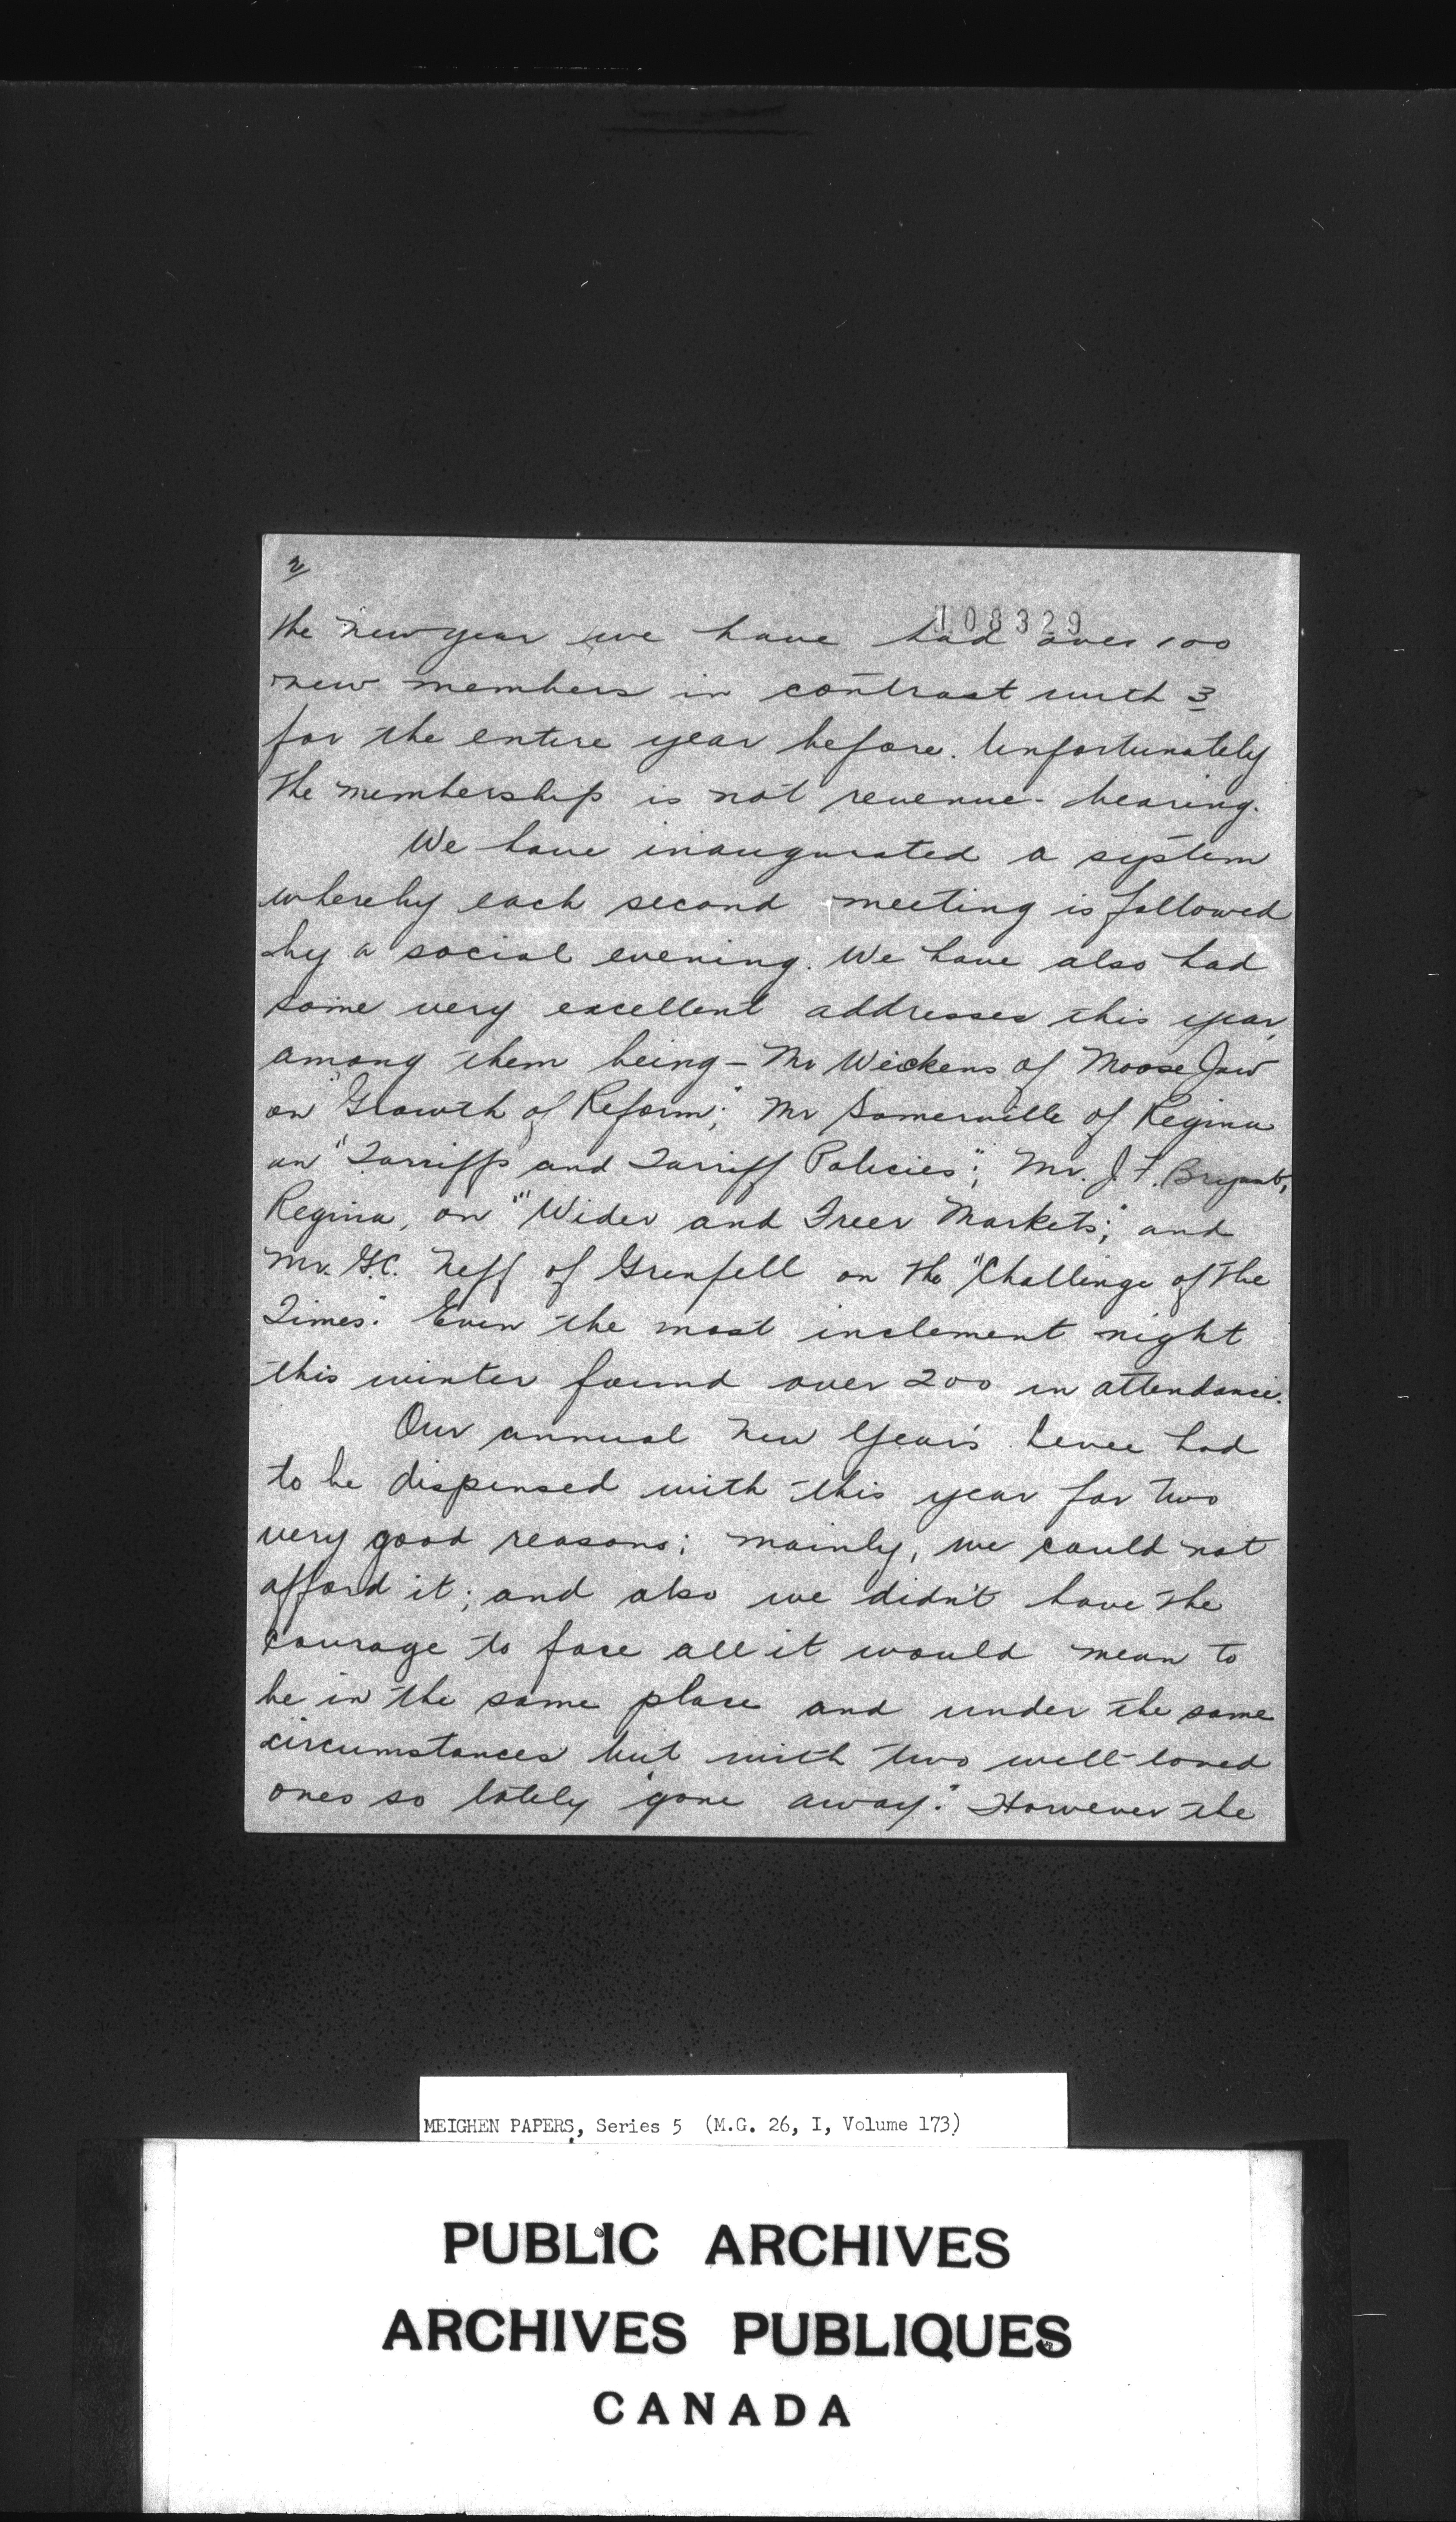 2/
108329
the new year we have had over 100
new members in contrast with 3
for the entire year before. Unfortunately
the membership is not revenue-bearing.
We have inaugurated a system
whereby each second meeting is followed
by a social evening. We have also had
some very excellent addresses this year,
among them being - Mr Weickens of Moose Jaw
on "Growth of Reform;" Mr Somerville of Regina
on "Tarriffs and Tarriff Policies"; Mr. J. F. Bryant,
Regina, on "Wider and Freer Markets;" and
Mr. G.C. Neff of Grenfell on the "Challenge of the
Times." Even the most inclement night
this winter found over 200 in attendance.
Our annual New Year's Levee had
to be dispensed with this year for two
very good reasons; mainly, we could not
afford it; and also we didn't have the
courage to face all it would mean to
be in the same place and under the same
circumstances but with two well-loved
ones so lately "gone away." However the
MEIGHEN PAPERS, Series 5 (M.G. 26, I, Volume 173)
PUBLIC ARCHIVES
ARCHIVES PUBLIQUES
CANADA